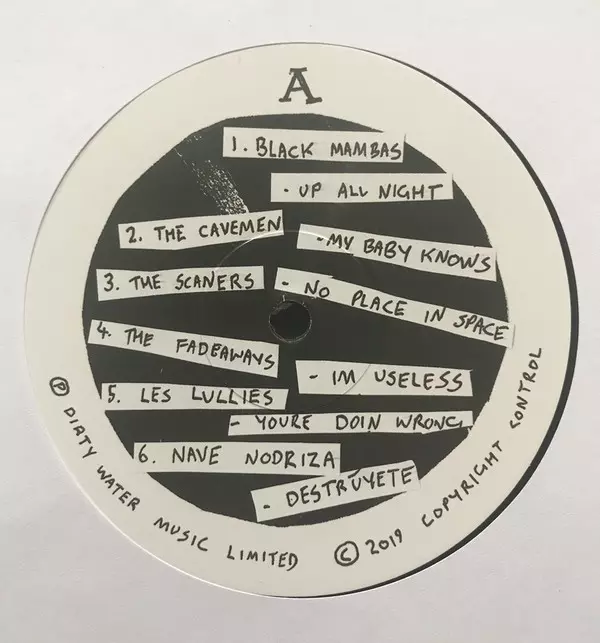 A
1. BLACK MAMBAS
- UP ALL NIGHT
2. THE CAVEMEN
- MY BABY KNOWS
3. THE SCANERS
- NO PLACE IN SPACE
4. THE FADEAWAYS
- IM USELESS
5. LES LULLIES
- YOURE DOIN WRONG
6. NAVE NODRIZA
- DESTRÚYETE
Ⓟ DIRTY WATER MUSIC LIMITED © 2019 COPYRIGHT CONTROL